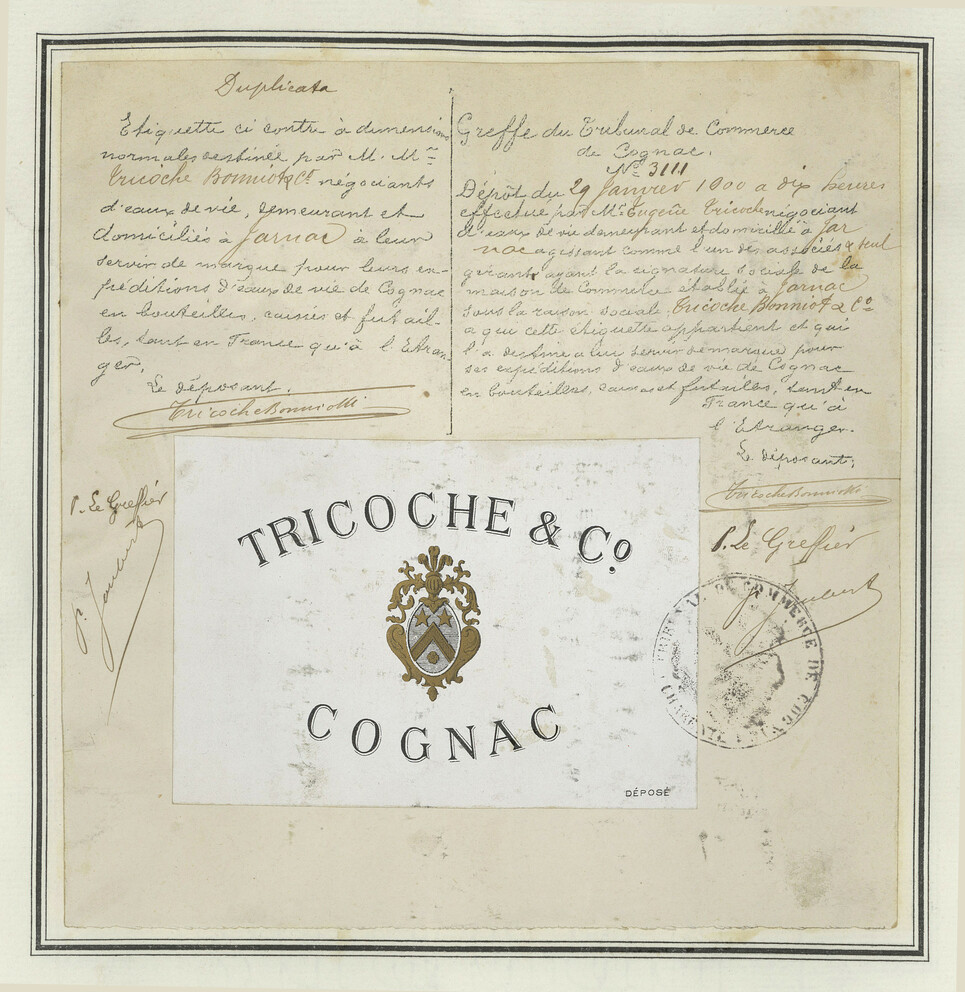 Duplicata
Etiquette ci contre à dimensions
normales destinée par M. M.rs
Tricoche Bonniot & Cº négociants
d'eaux de vie, demeurant et
domiciliés à Jarnac à leur
servir de marque pour leurs ex-
péditions d'eaux de vie de Cognac
en bouteilles, caisses et futail-
les, tant en France qu'à l'Etran-
ger.
Le déposant.
Tricoche Bonniot & Cº
P. Le Greffier
Greffe du Tribunal de Commerce
de Cognac.
Nº 3111
Dépôt du 29 Janvier 1900 à dix heures
effectué par Mr Eugène Tricoche négociant
d'eaux de vie demeurant et domicilié à Jar
nac agissant comme l'un des associés & seul
gérant ayant la signature sociale de la
maison de Commerce établie à Jarnac
sous la raison sociale, Tricoche Bonniot & Cº
a qui cette étiquette appartient et qui
l'a destine a lui servir de marque pour
ses expéditions d'eaux de vie de Cognac
en bouteilles, caisses et futailles, tant en
France qu'à
l'Etranger.
Le déposant:
Tricoche Bonniot & Cº
P. Le Greffier
TRICOCHE & Cº
COGNAC
DÉPOSÉ
TRIBUNAL DE COMMERCE DE COGNAC